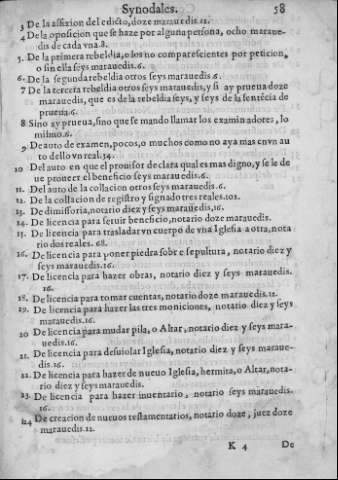 Synodales. 58
3 De la affixion del edicto, doze marauedis.12.
4 De la oposicion que se haze por alguna persona, ocho maraue-
dis de cada vna.8.
5. De la primera rebeldia, o los no comparescientes por peticion,
o sin ella seys marauedis.6.
6. De la segunda rebeldia otros seys marauedis 6.
7 De la tercera rebeldia otros seys marauedis, y si ay prueua doze
marauedis, que es de la rebeldia seys, y seys de la sentẽcia de
prueua.6.
8 Si no ay prueua, sino que se mando llamar los examinadores, lo
mismo.6.
9. De auto de examen, pocos, o muchos como no aya mas cnvn au
to dellos vn real.34.
10 Del auto en que el prouisor declara qual es mas digno, y se le de
ue proueer el beneficio seys marauedis.6.
11. Del auto de la collacion otros seys marauedis.6.
12. De la collacion de registro y signado tres reales.102.
13. De dimissoria, notario diez y seys marauedis,16.
14. De licencia para seruir beneficio, notario doze marauedis.
15. De licencia para trasladar vn cuerpo de vna Iglesia a otra, nota
rio dos reales. 68.
16. De licencia para poner piedra sobre sepultura, notario diez y
seys marauedis.16.
17. De licencia para hazer obras, notario diez y seys marauedis.
16.
18. De licencia para tomar cuentas, notario doze marauedis.12.
19. De licencia para hazer las tres moniciones, notario diez y seys
marauedis.16.
20 De licencia para mudar pila, o Altar, notario diez y seys mara-
uedis.16.
21. De licencia para desuiolar Iglesia, notario diez y seys maraue-
dis.16.
22. De licencia para hazer de nueuo Iglesia, hermita, o Altar, nota-
rio diez y seys marauedis.
23. De licencia para hazer inuentario, notario seys marauedis.
16.
24 De creacion de nueuos testamentarios, notario doze, juez doze
marauedis.12.
K 4 De